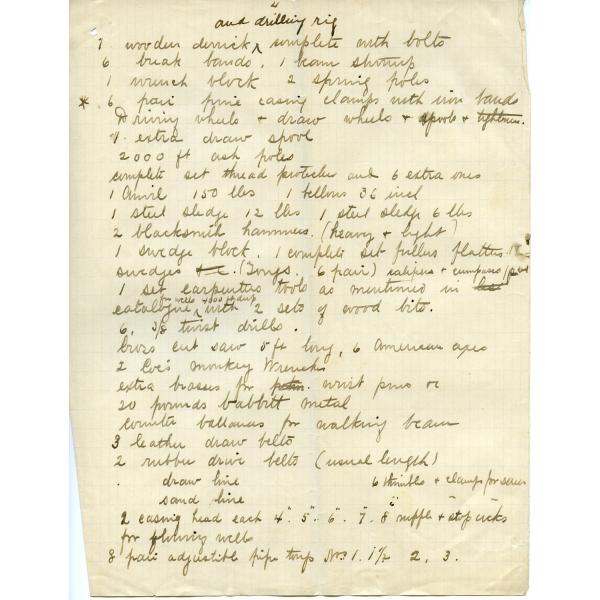 and drilling rig
7 wooden derrick ^ complete with bolts
6 break bands. 1 beam stirrup
1 wrench block 2 spring poles
* 6 pair pine casing clamps with iron bands
Driving wheels + draw wheels + spools +
extra draw spool
2000 ft ash poles
complete set thread protector and 6 extra ones
1 Anvil 150 lbs 1 bellows 36 inch
1 steel sledge 12 lbs 1 steel sledge 6 lbs
2 blacksmith hammers. (heavy + light)
1 swedge block. 1 complete set fullers flatters
swedges (Tongs. 6 pair) calipers + compasses
1 set carpenters tools as mentioned in
for wells 4000 ft deep
catalogue ^ with 2 sets of wood bits.
6, 3/8 twist drills.
Cross cut saw 5 ft long, 6 American axes
2 Coe's monkey Wrenches
extra brasses for wrist pins
20 pounds babbitt metal
counter ballances for walking beam
3 leather draw belts
2 rubber drive belts (usual length)
draw line 6 thimbles + clamps for
sand line
2 casing head each 4". 5". 6". 7. 8" nipples + stop cocks
for flowing wells
8 pair adjustible pipe tongs Nos. 1. 1½ 2, 3.